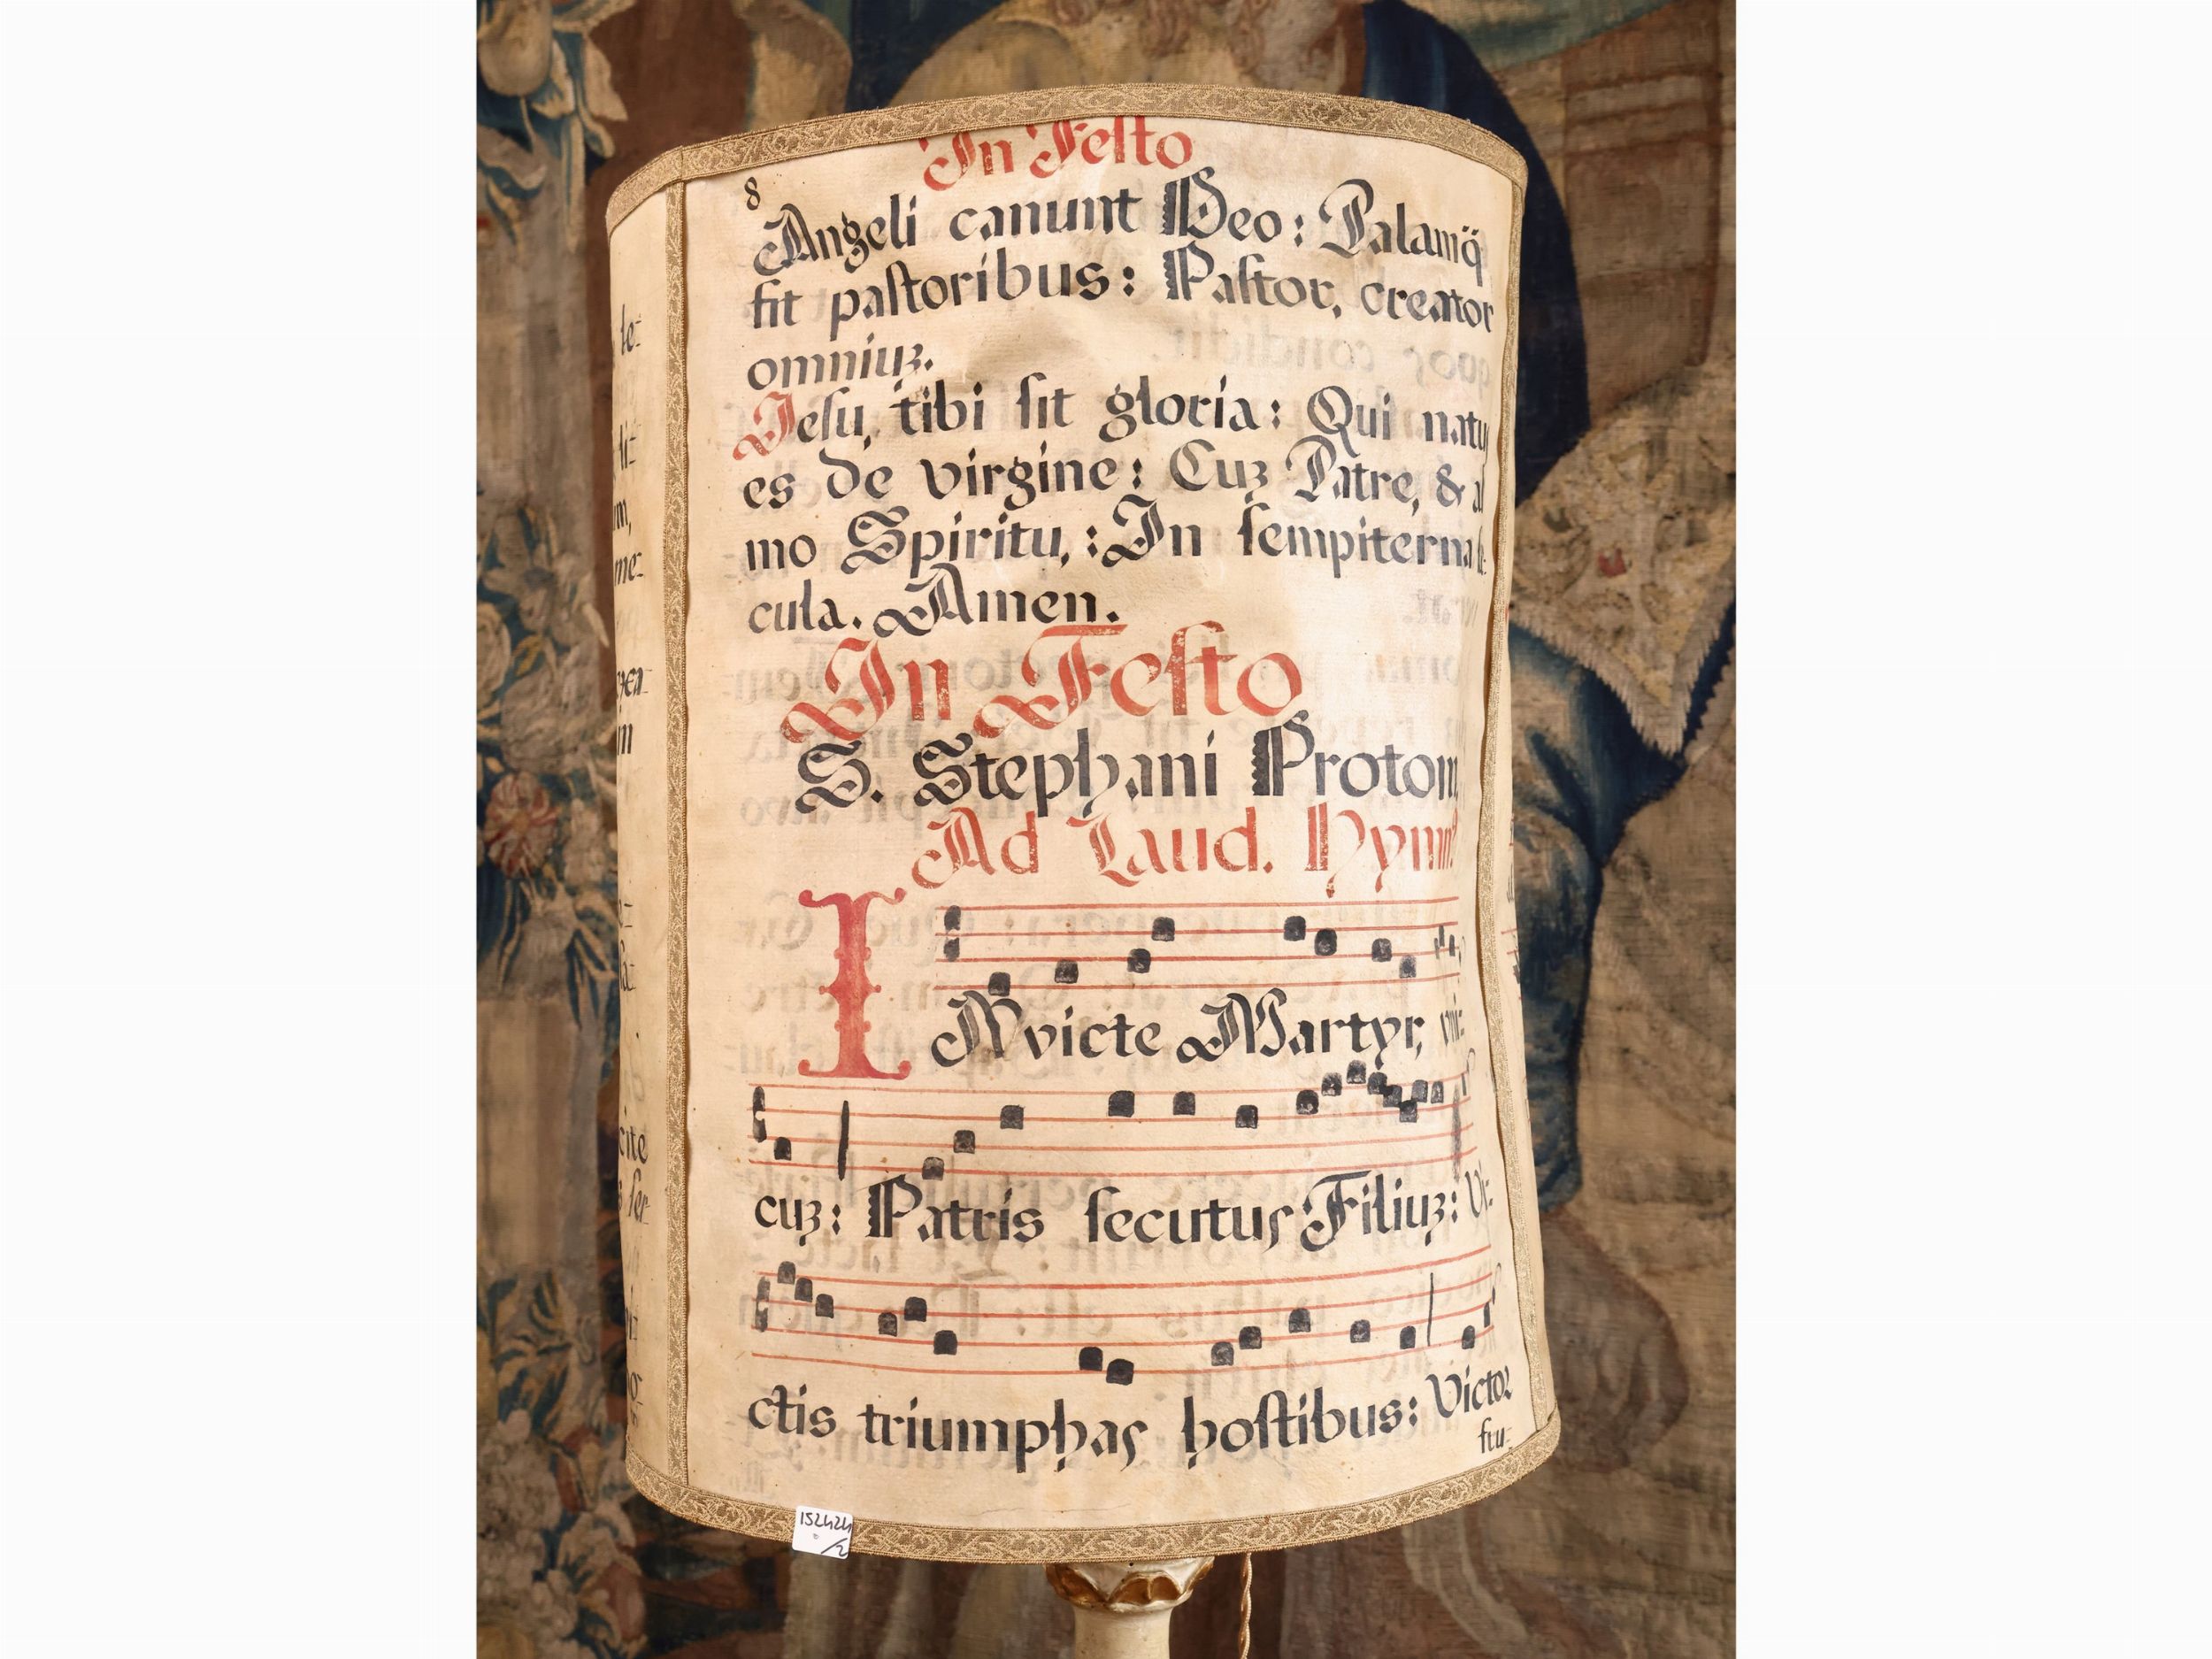 In Festo
8
Angeli canunt Deo: Palamq̈
fit paſtoribus: Paſtor, creator
omniuz.
Jeſu, tibi ſit gloria: Qui natu
es de virgine: Cuz Patre, & al
mo Spiritu,: In ſempiterna ſe-
cula. Amen.
In Feſto
S. Stephani Protom
Ad Laud. Hymn
INvicte Martyr, vni-
cuz: Patris ſecutus Filiuz: Vi-
ctis triumphas hoſtibus: Victor
fru-
le-
ti-
m,
me-
m
cite
152424
/2